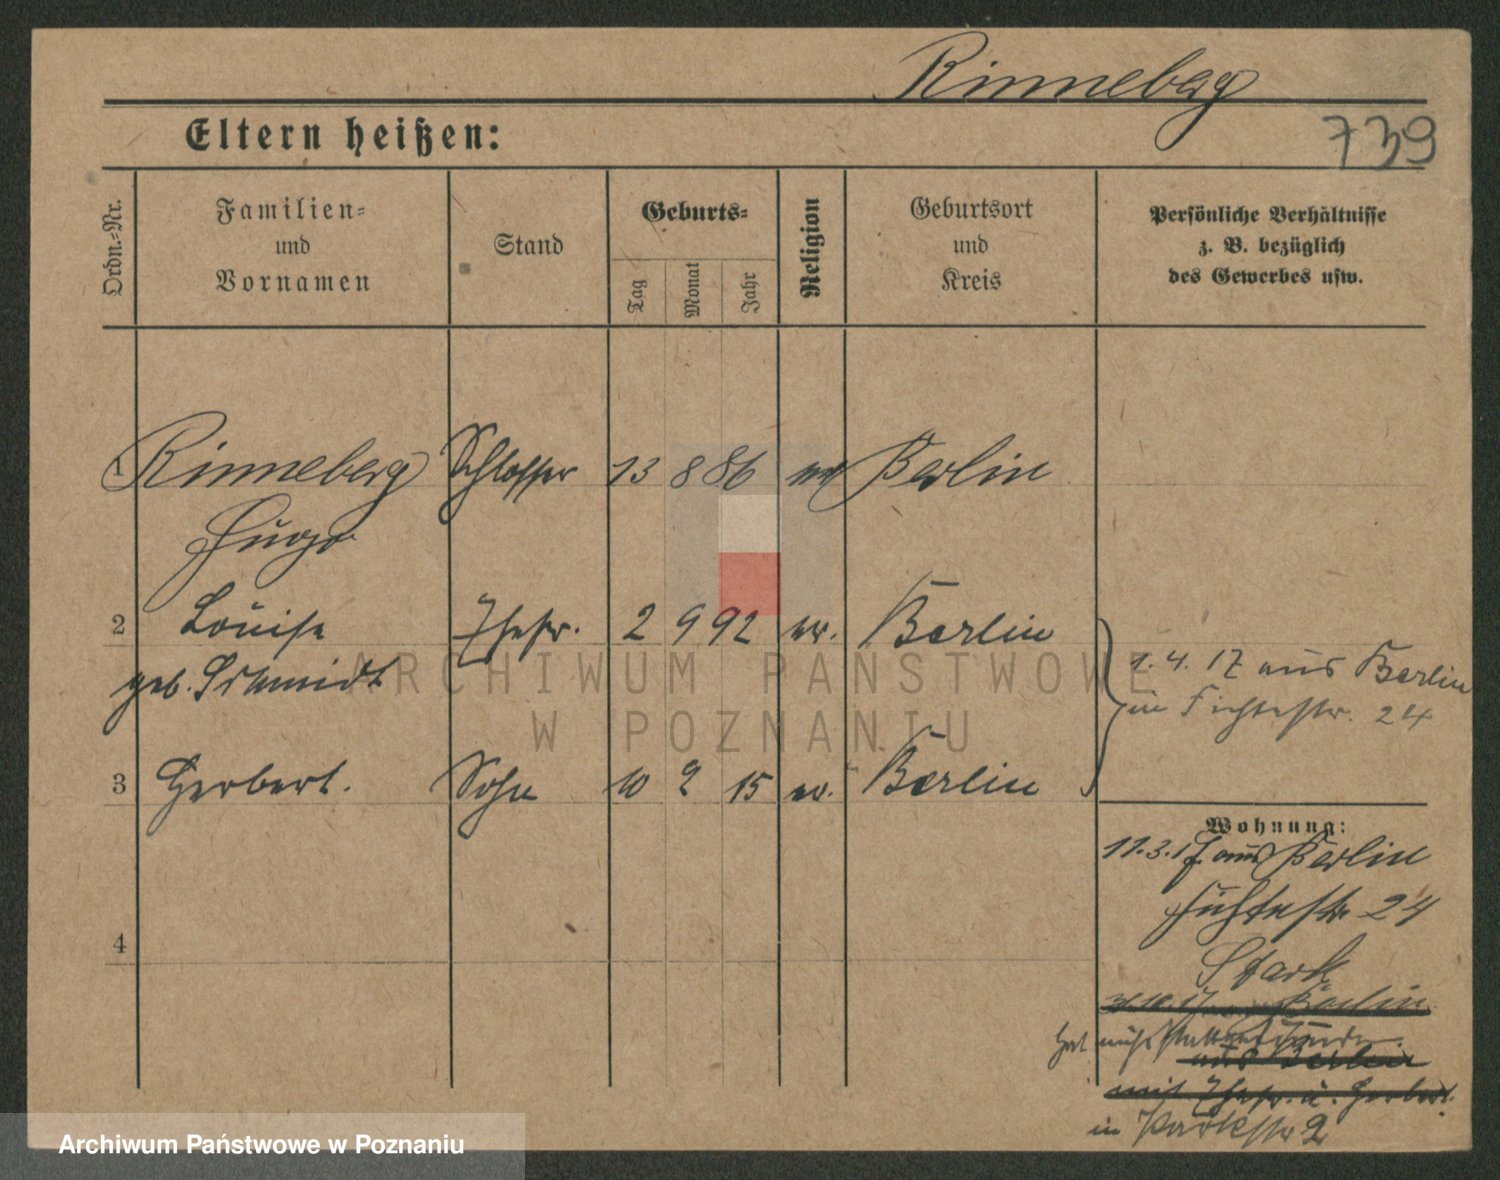 Rinneberg
Eltern heißen:
739
Ordn.-Nr.
Familien-
und
Vornamen
Stand
Geburts-
Tag
Monat
Jahr
Religion
Geburtsort
und
Kreis
Persönliche Verhältnisse
z. B. bezüglich
des Gewerbes usw.
1 Rinneberg Schlosser 13 8 86 ev Berlin
Hugo
2 Louise Ehefr. 2 9 92 ev. Berlin
geb. Schmidt
1. 4. 17 aus Berlin
in Fichtestr. 24
3 Herbert. Sohn 10 2 15 ev. Berlin
Wohnung:
11.3.17 aus Berlin
Fichtestr 24
Stark
Berlin
hat nicht stattgefunden.
aus Berlin
mit Ehefr. u. Herbert.
in Parkstr 2
4
ARCHIWUM PAŃSTWOWE
W POZNANIU
Archiwum Państwowe w Poznaniu